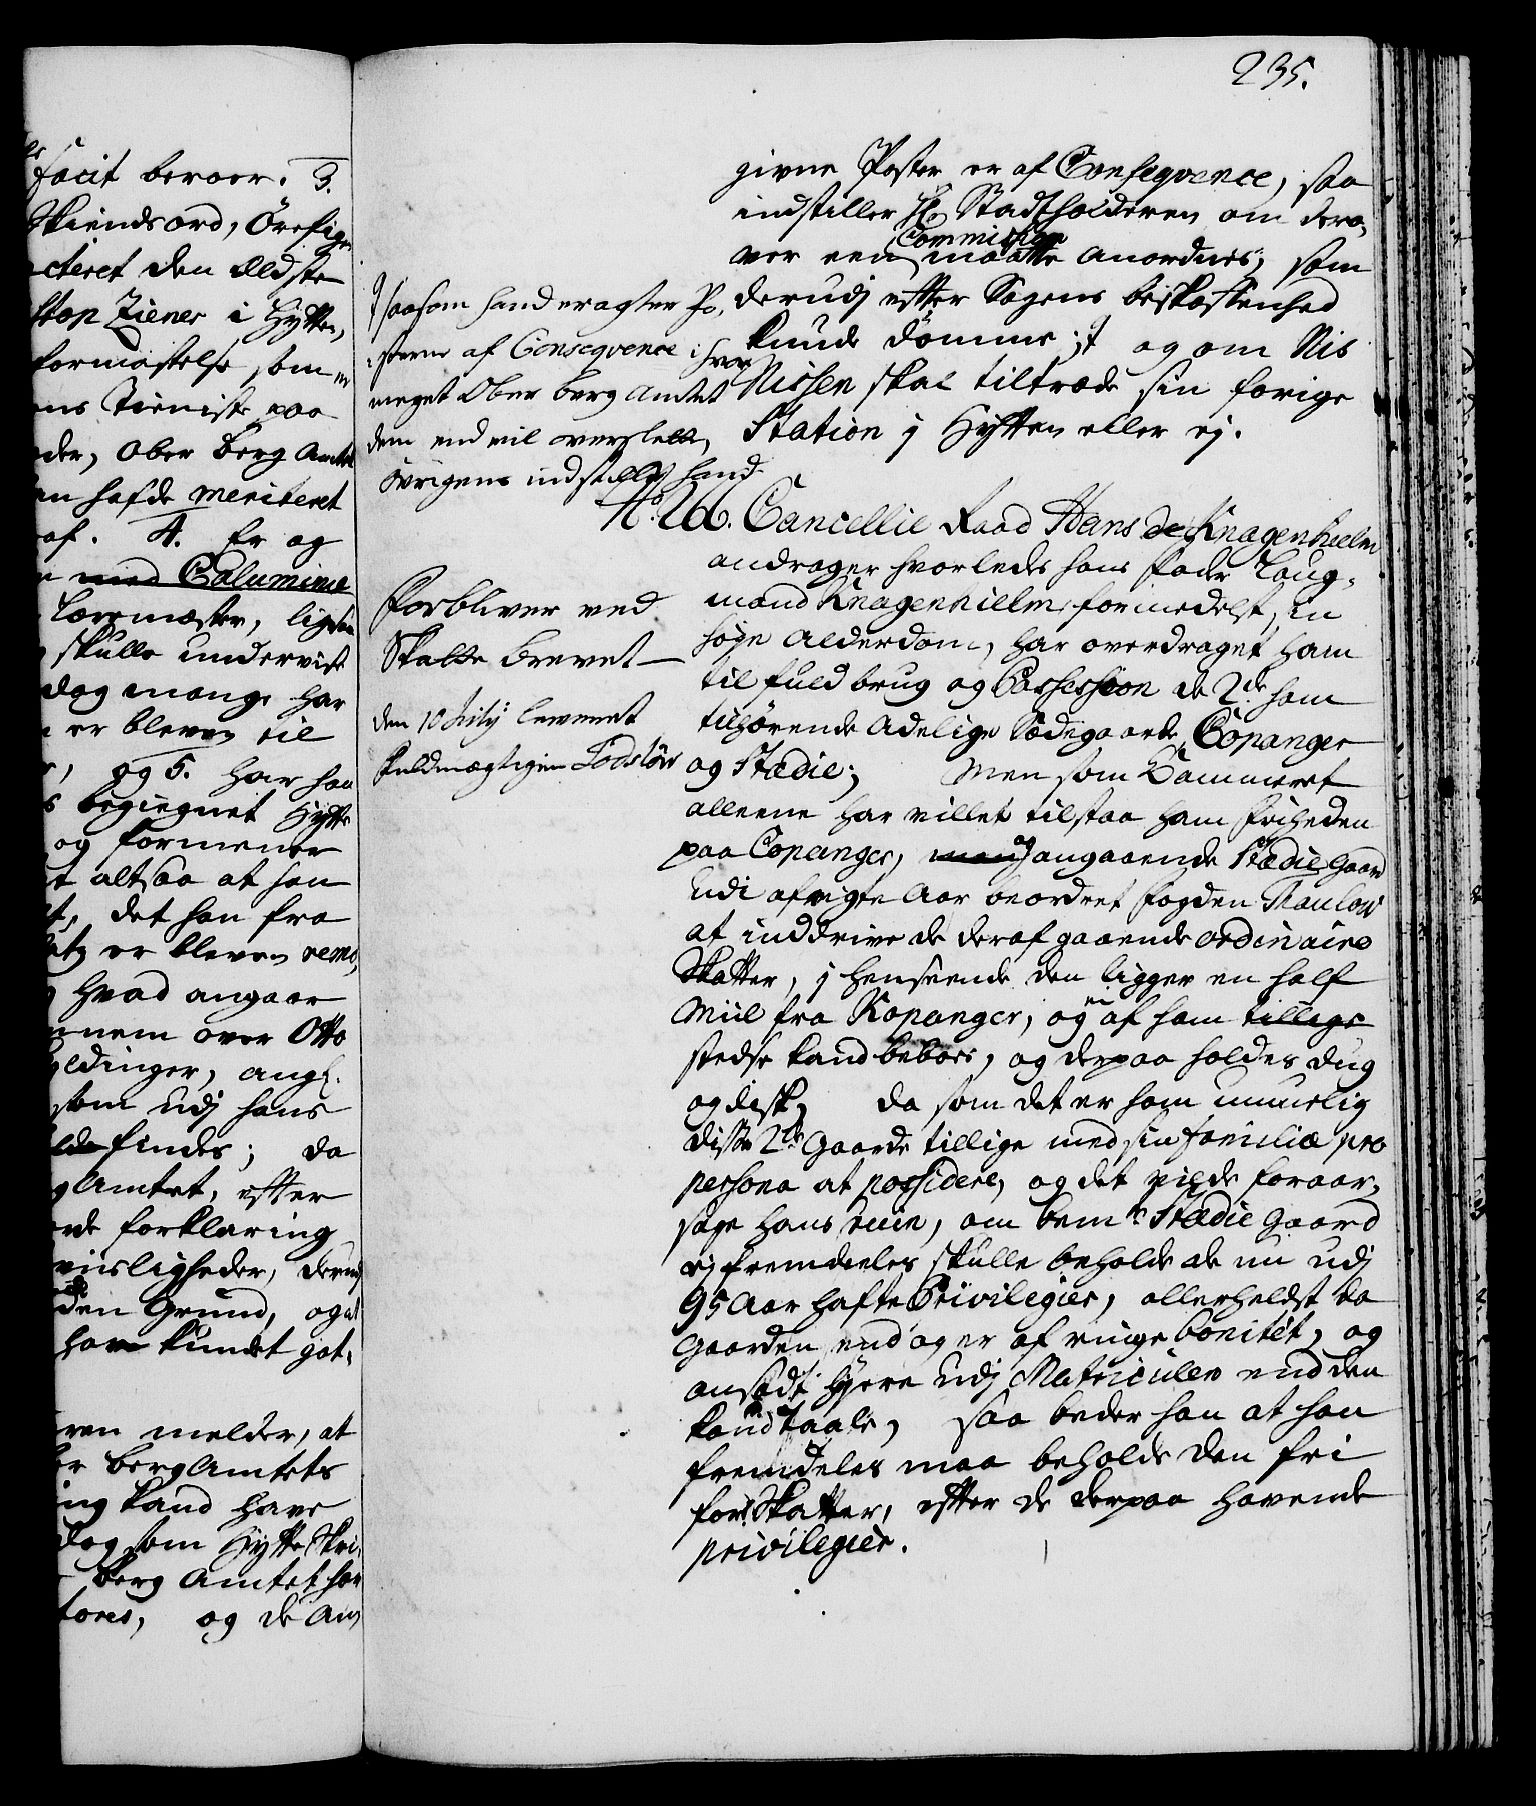 235.
facit beroer. 3.
Skiendsord, Örefige
cteret den Eldste
Stop Ziener i Hytten,
formastelse som
ens Tieniste paa
der, Ober Berg Amtet
an hafde meriteret
af. 4. Er og
med Calumime
Læremæster, ligesom
skulle undervise
dog mange har
er bleven til
og 5. har han
begiegnet Hytte
og formener
altsaa at han
det han fra
er bleven remo,
hvad angaar
nem over Otto
ldinger, angl.
som udj hans
findes; da
Amtet, efter
forklaring
viisligheder, derudj
den Grund, og at
have kundet got,
ren melder, at
Berg Amtets
kand have
dog som Hytte Skri,
Berg Amtet har
tores, og de Am
givne Poster er af Conseqvence, saa
indstiller Hr. Stadtholderen om dero,
ver een Commission maatte anordnes, som
derudj efter Sagens beskaffenhed
kunde dømme; † og om Nis
Nissen skal tiltræde sin forige
Station j Hytten eller ej.
† saasom hand eragter Po,
sterne af Conseqvence i hvor
meget Ober Berg Amtet
dem end vil oversee,
øvrigens indstiller hand
No. 26. Cancellie Raad Hans de Knagenhielm
andrager hvorledes hans Fader Laug,
mand Knagenhielm formedelst, en
høye Alderdom, har overdraget ham
til fuld brug og Possession de 2de ham
tilhørende Adelige Sædegaarde Copanger
og Stædie; Men som Cammeret
alleene har villet tilstaa ham friheden
paa Copanger, og angaaende Stædie Gaard
udi afvigte Aar beordret Fogden Thaulow
at inddrive de deraf gaaende ordinaire
Skatter, j henseende den ligger en half
Miil fra Kopanger, og ei af ham tillige
stedse kand beboes, og derpaa holdes dug
og disk, da som det er ham umuelig
disse 2de Gaarde tillige med sin familie pro
persona at possidere, og det vilde foraar,
sage hans ruin, om bemte Stædie Gaard
ej fremdeeles skulle beholde de nu udj
95 Aar hafte Privilegier, allerheldst da
Gaarden endog er af ringe bonitet, og
ansadt høyere udj Matriculen end den
kand taale, saa beder han at han
fremdeles maa beholde den fri
for Skatter, efter de derpaa havende
privilegier.
Forbliver ved
Skatte brevet
den 10 July leveret
fuldmægtigen Todsløv